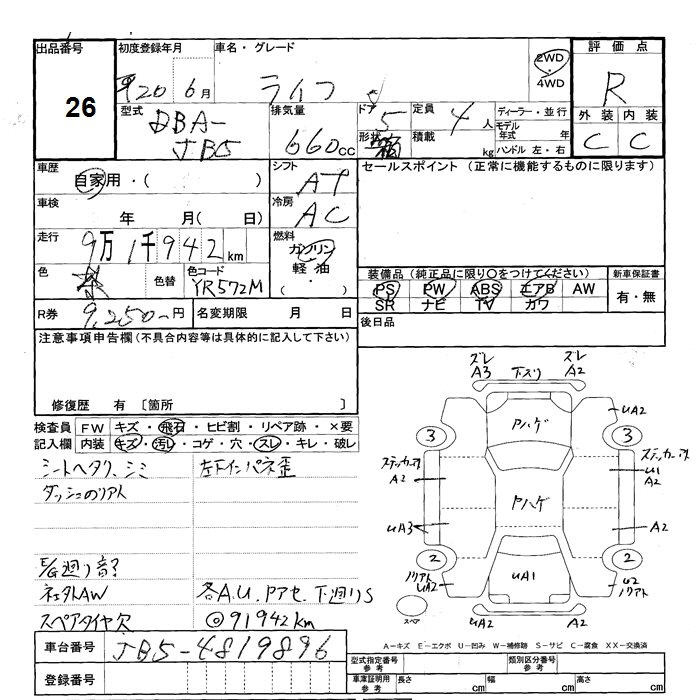 出品番号
26
初度登録年月
H20 6月
車名・グレード
ライフ
2WD
・
4WD
評価点
R
外装 内装
C C
型式
DBA-
JB5
排気量
660cc
ドア
5
形状
箱
定員
4人
積載
kg
ディーラー・並行
モデル
年式 年
ハンドル 左・右
車歴
自家用・( )
シフト
AT
セールスポイント (正常に機能するものに限ります)
車検
年 月( 日)
冷房
AC
走行
9万1千942km
燃料
ガソリン
軽油
・
( )
色
茶
色替
色コード
YR572M
装備品 (純正品に限り○をつけてください)
PS PW ABS エアB AW
SR ナビ TV カワ
新車保証書
有・無
R券
9,250-円
名変期限 月 日
後日品
注意事項申告欄(不具合内容等は具体的に記入して下さい)
修復歴 有 〔箇所 〕
検査員 FW キズ・飛石・ヒビ割・リペア跡・×要
記入欄 内装 キズ・汚レ・コゲ・穴・スレ・キレ・破レ
シートヘタリ、シミ
左下インパネ歪
ダッシュのリアト
E/G廻り音?
社外AW
各A.U.Pアセ、下廻りS
スペアタイヤ欠
◎91942km
車台番号
JB5-4819896
登録番号
ズレ
A3
下スリ
ズレ
A2
Pハゲ
UA2
3
3
ステッカーア
A2
ステッカーア
U1
A2
Pハゲ
UA3
A2
2
2
ノリアト
UA2
UA1
U2
ノリアト
スペア
UA2
A2
A-キズ E-エクボ U-凹み W-補修跡 S-サビ C-腐食 XX-交換済
型式指定番号
参考
類別区分番号
参考
車庫証明用
参考
長さ cm
幅 cm
高さ cm